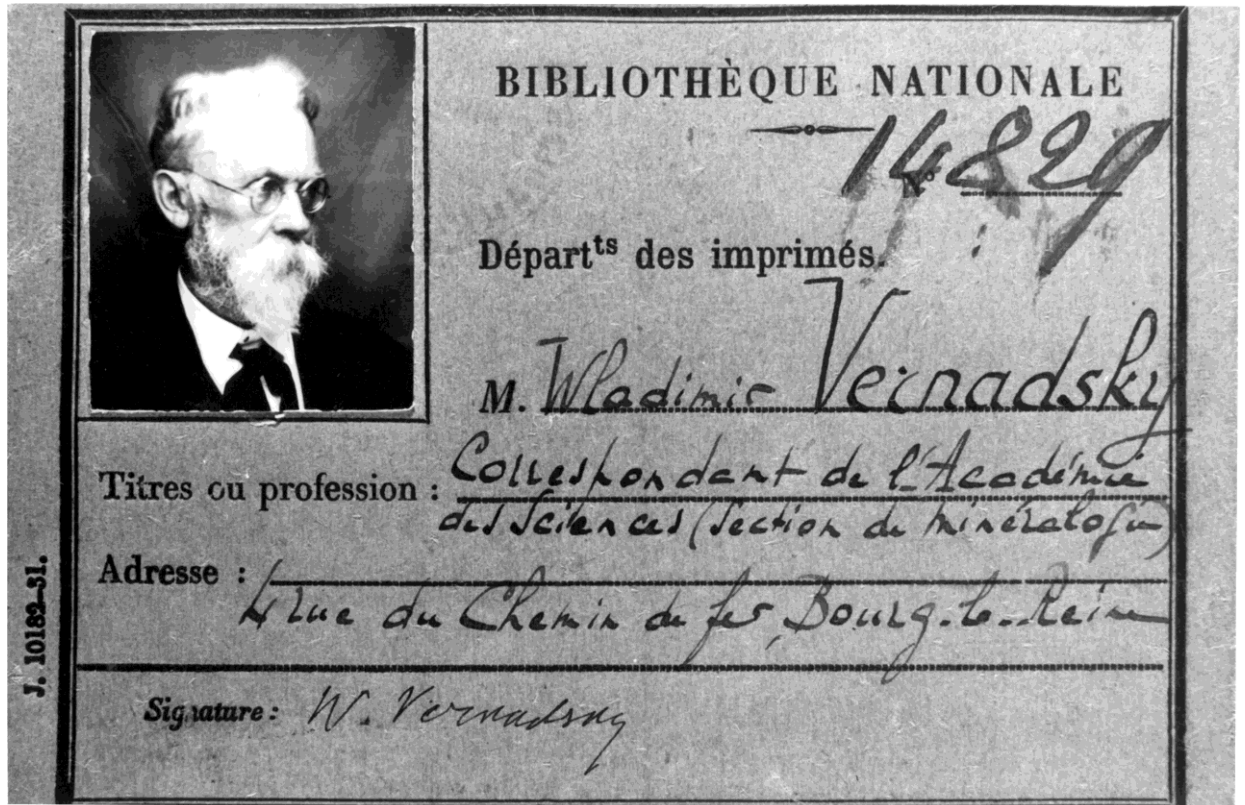 BIBLIOTHÈQUE NATIONALE
N° 14829
Départts des imprimés.
M. Wladimir Vernadsky
Titres ou profession : Correspondant de l'Académie
des Sciences (Section de minéralogie)
Adresse :
4 rue du Chemin de fer, Bourg-la-Reine
Signature: W. Vernadsky
J. 10182-31.